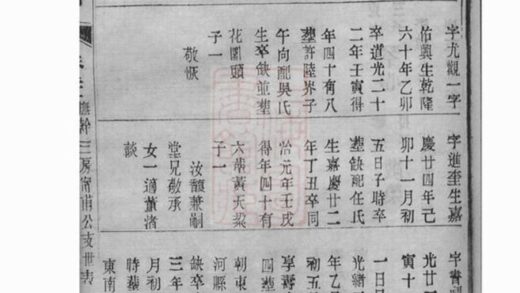 字尤觀一字
佑興生乾隆
六十年乙卯
卒道光二十
二年壬寅得
年四十有八
葬許陸界子
午向配吳氏
生卒缺並葬
花園頭
子一
敬
字進奎生嘉
慶廿四年己
卯十一月初
五日子時卒
葬缺配任氏
生嘉慶廿二
年丁丑卒同
治元年壬戌
得年四十有
六葬黃天梁
子一
汝馥兼嗣
堂兄敬承
女一適董渚
談
字
光廿
寅十
一日
光緒
年乙
初五
享壽
四葬
朝東
河縣
缺卒
三年
月初
時葬
東南
應幹三房甯甫公支世表